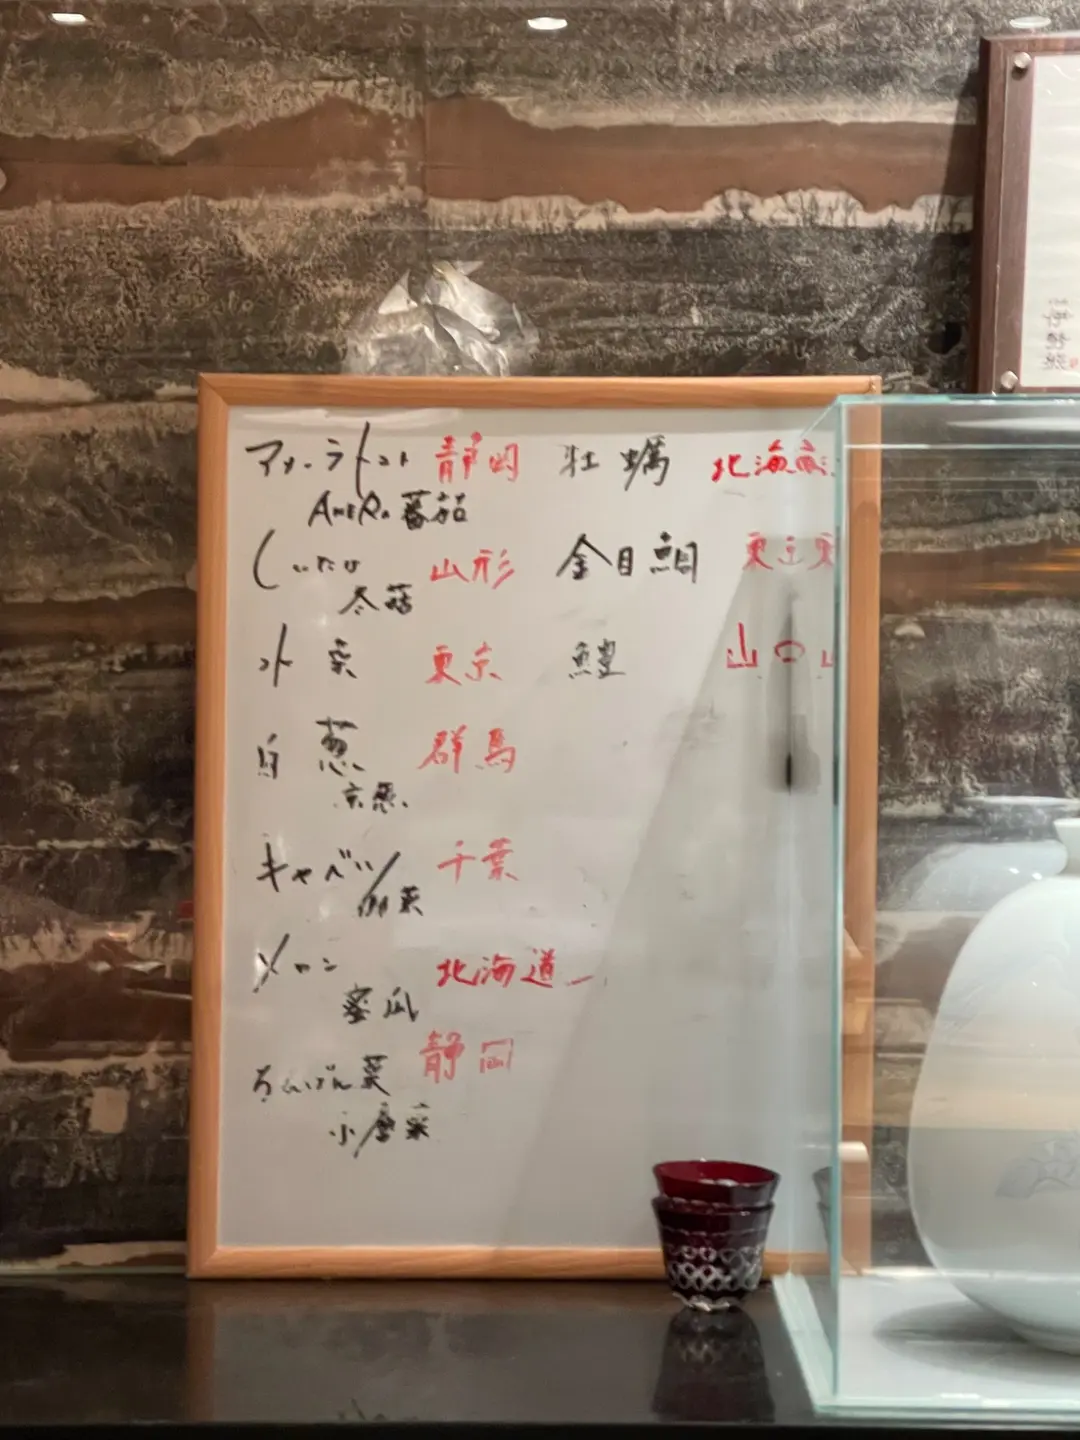 アメーラトマト 静岡 牡蠣 北海道
AMERA蕃茄
しいたけ 山形 金目鯛 東京
冬菇
水菜 東京 鱧 山口
白葱 群馬
京葱
キャベツ 千葉
メロン 北海道
蜜瓜
静岡
小唐菜